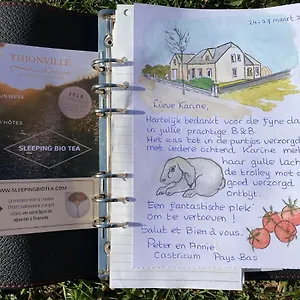 THIONVILLE
D'HÔTES
SLEEPING BIO TEA
WWW.SLEEPINGBIOTEA.COM
24-27 maart 2
Lieve Karine,
Hartelijk bedankt voor de fijne da
in jullie prachtige B&B.
Het was tot in de puntjes verzorgd
met iedere ochtend Karine met
haar gulle lach
de trolley met
goed verzorgd
ontbijt.
Een fantastische plek
om te vertoeven!
Salut et Bien à vous.
Peter en Annie
Castricum Pays Bas